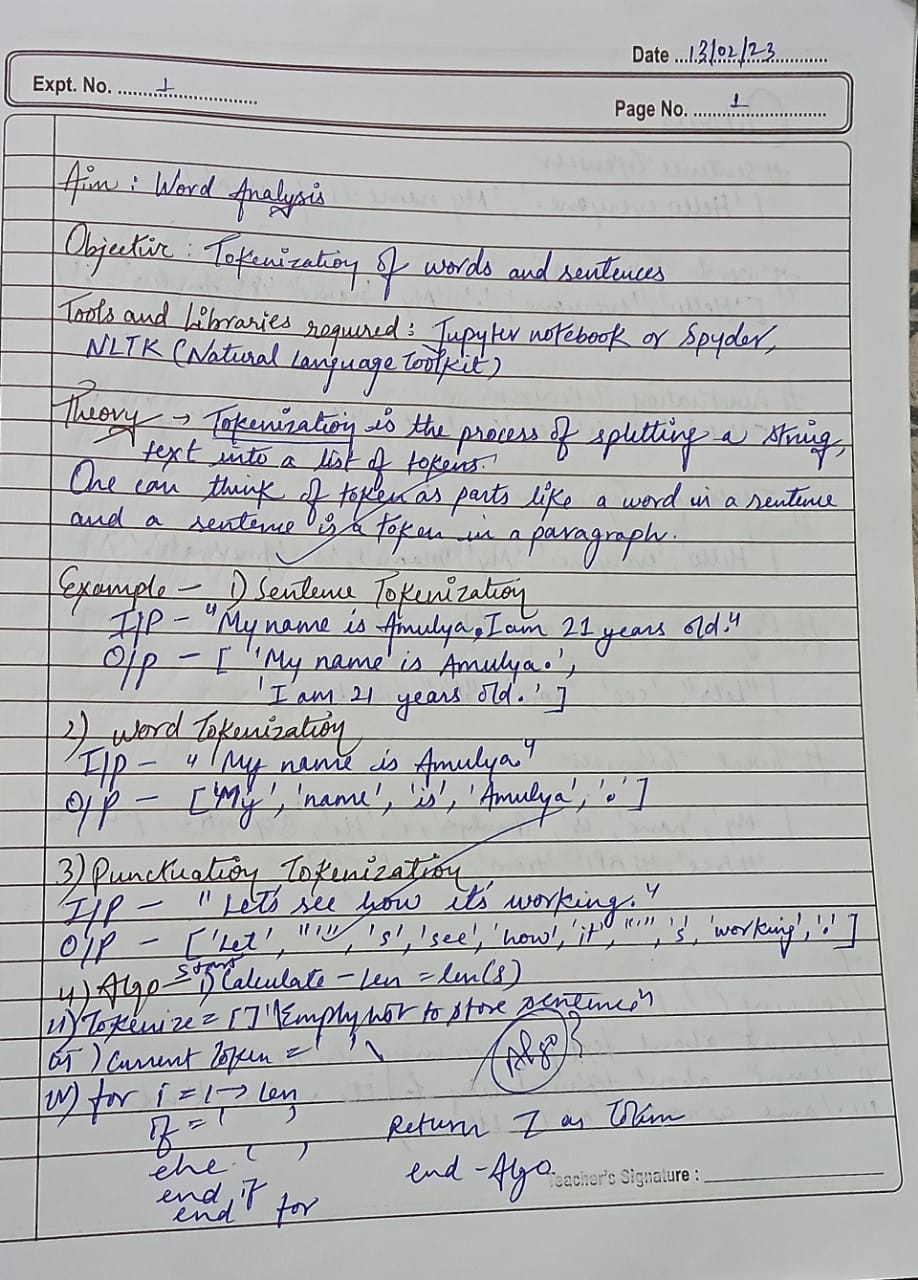 Date 13/02/23
Expt. No. 1
Page No. 1
Aim : Word Analysis
Objective : Tokenization of words and sentences
Tools and Libraries required : Jupyter notebook or Spyder,
NLTK (Natural Language Toolkit)
Theory → Tokenization is the process of splitting a string,
text into a list of tokens.
One can think of token as parts like a word in a sentence
and a sentence is a token in a paragraph.
Example – 1) Sentence Tokenization
I/P – "My name is Amulya. I am 21 years old."
O/p – [ 'My name is Amulya.',
'I am 21 years old.' ]
2) Word Tokenization
I/p – "My name is Amulya"
O/p – ['My', 'name', 'is', 'Amulya', '.']
3) Punctuation Tokenization
I/P – "Let's see how it's working."
O/P – ['Let', "'", 's', 'see', 'how', 'it', "'", 's', 'working', '.']
4) Algo – Start i) Calculate – len = len(s)
ii) Tokenize = [ ] "Empty to store sentence"
) Current Token = ' '
Algo
iv) for i = 1 → len
if = ' '
Return as Token
else ( )
end – Algo.
Teacher's Signature :
end if
end for